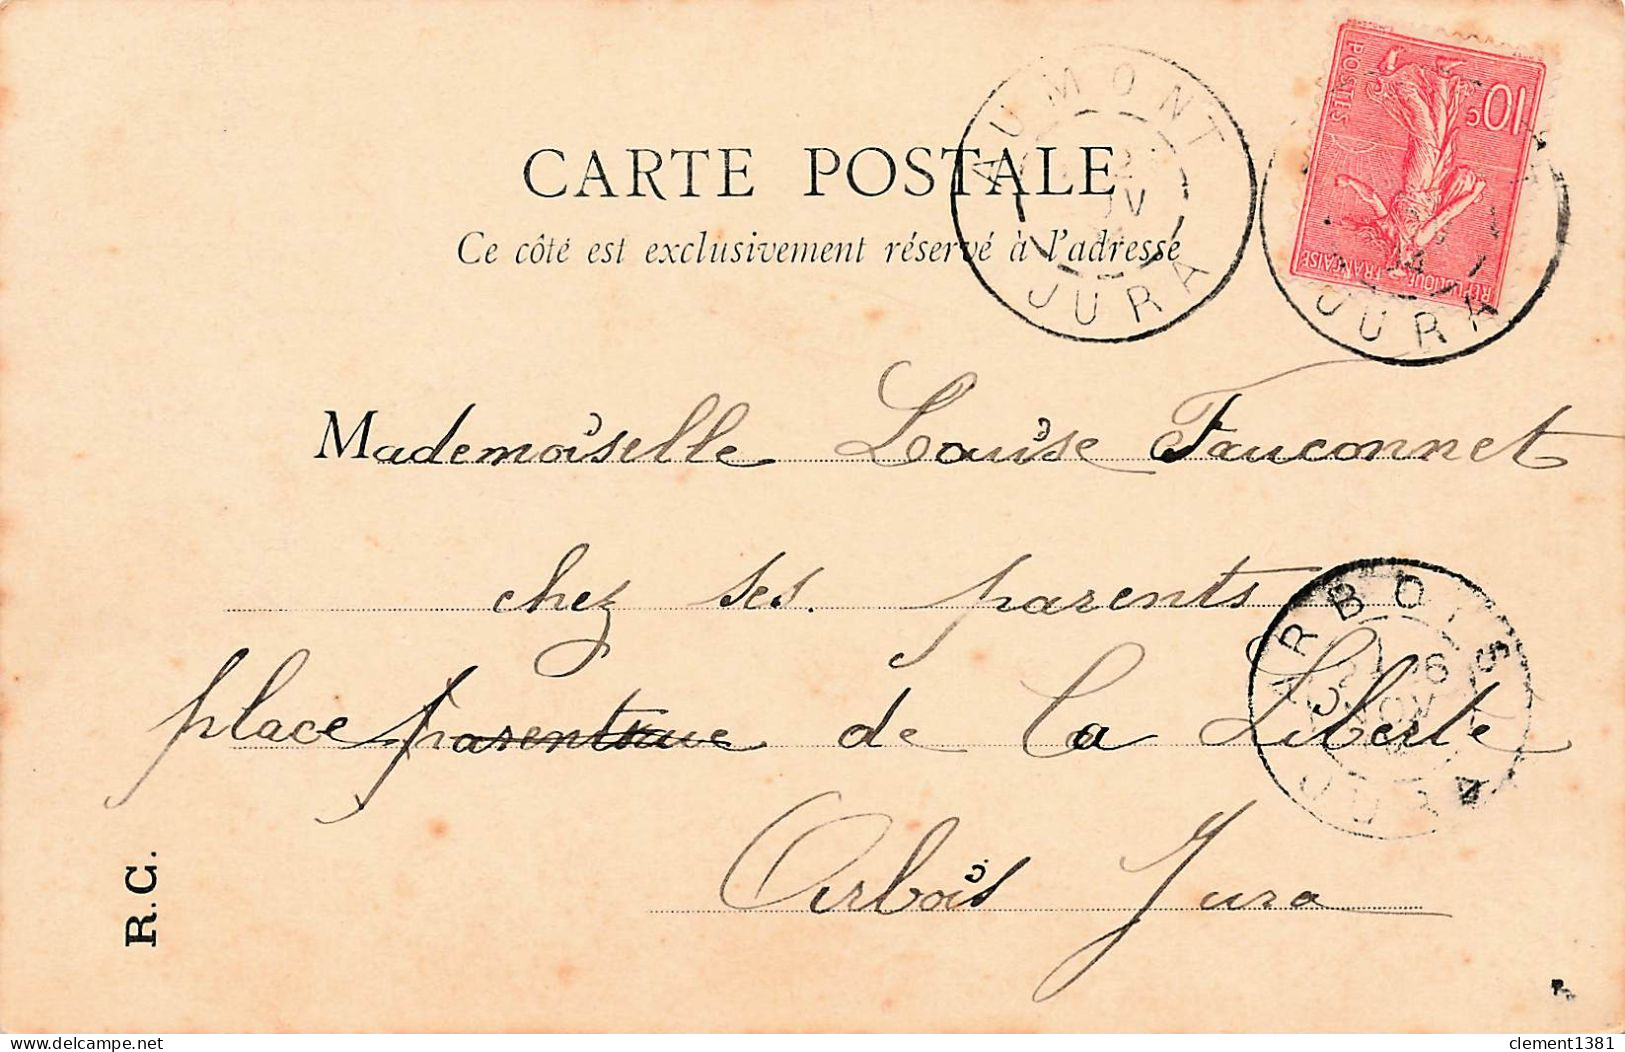 CARTE POSTALE
Ce côté est exclusivement réservé à l'adresse
AUMONT
JURA
10c
POSTES
REPUBLIQUE FRANÇAISE
JURA
Mademoiselle Louise Fauconnet
chez ses. parents
place de la Liberte
Arbois Jura
ARBOIS
R.C.
clement1381